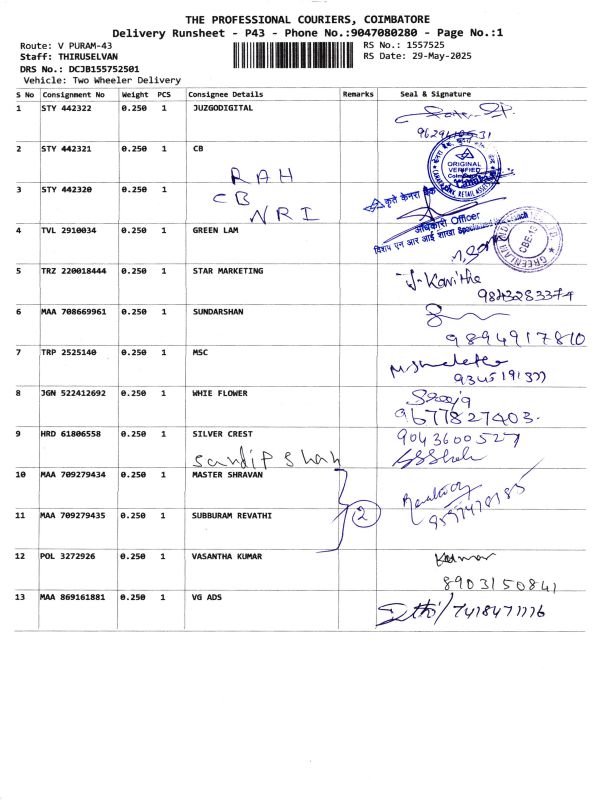 THE PROFESSIONAL COURIERS, COIMBATORE
Delivery Runsheet - P43 - Phone No.:9047080280 - Page No.:1
Route: V PURAM-43
RS No.: 1557525
Staff: THIRUSELVAN
RS Date: 29-May-2025
DRS No.: DCJB155752501
Vehicle: Two Wheeler Delivery
S No Consignment No Weight PCS Consignee Details Remarks Seal & Signature
1 STY 442322 0.250 1 JUZGODIGITAL
2 STY 442321 0.250 1 CB
ORIGINAL
VERIFIED
RAH
3 STY 442320 0.250 1
CB
NRI
अधिकारी Officer
4 TVL 2910034 0.250 1 GREEN LAM
CBE-12
5 TRZ 220018444 0.250 1 STAR MARKETING
J. Kavitha
9843283374
6 MAA 708669961 0.250 1 SUNDARSHAN
9894917810
7 TRP 2525140 0.250 1 MSC
8 JGN 522412692 0.250 1 WHIE FLOWER
9677827403.
9 HRD 61806558 0.250 1 SILVER CREST
9043600527
Sandip Shah
10 MAA 709279434 0.250 1 MASTER SHRAVAN
2
11 MAA 709279435 0.250 1 SUBBURAM REVATHI
12 POL 3272926 0.250 1 VASANTHA KUMAR
Kumar
8903150841
13 MAA 869161881 0.250 1 VG ADS
7418471116